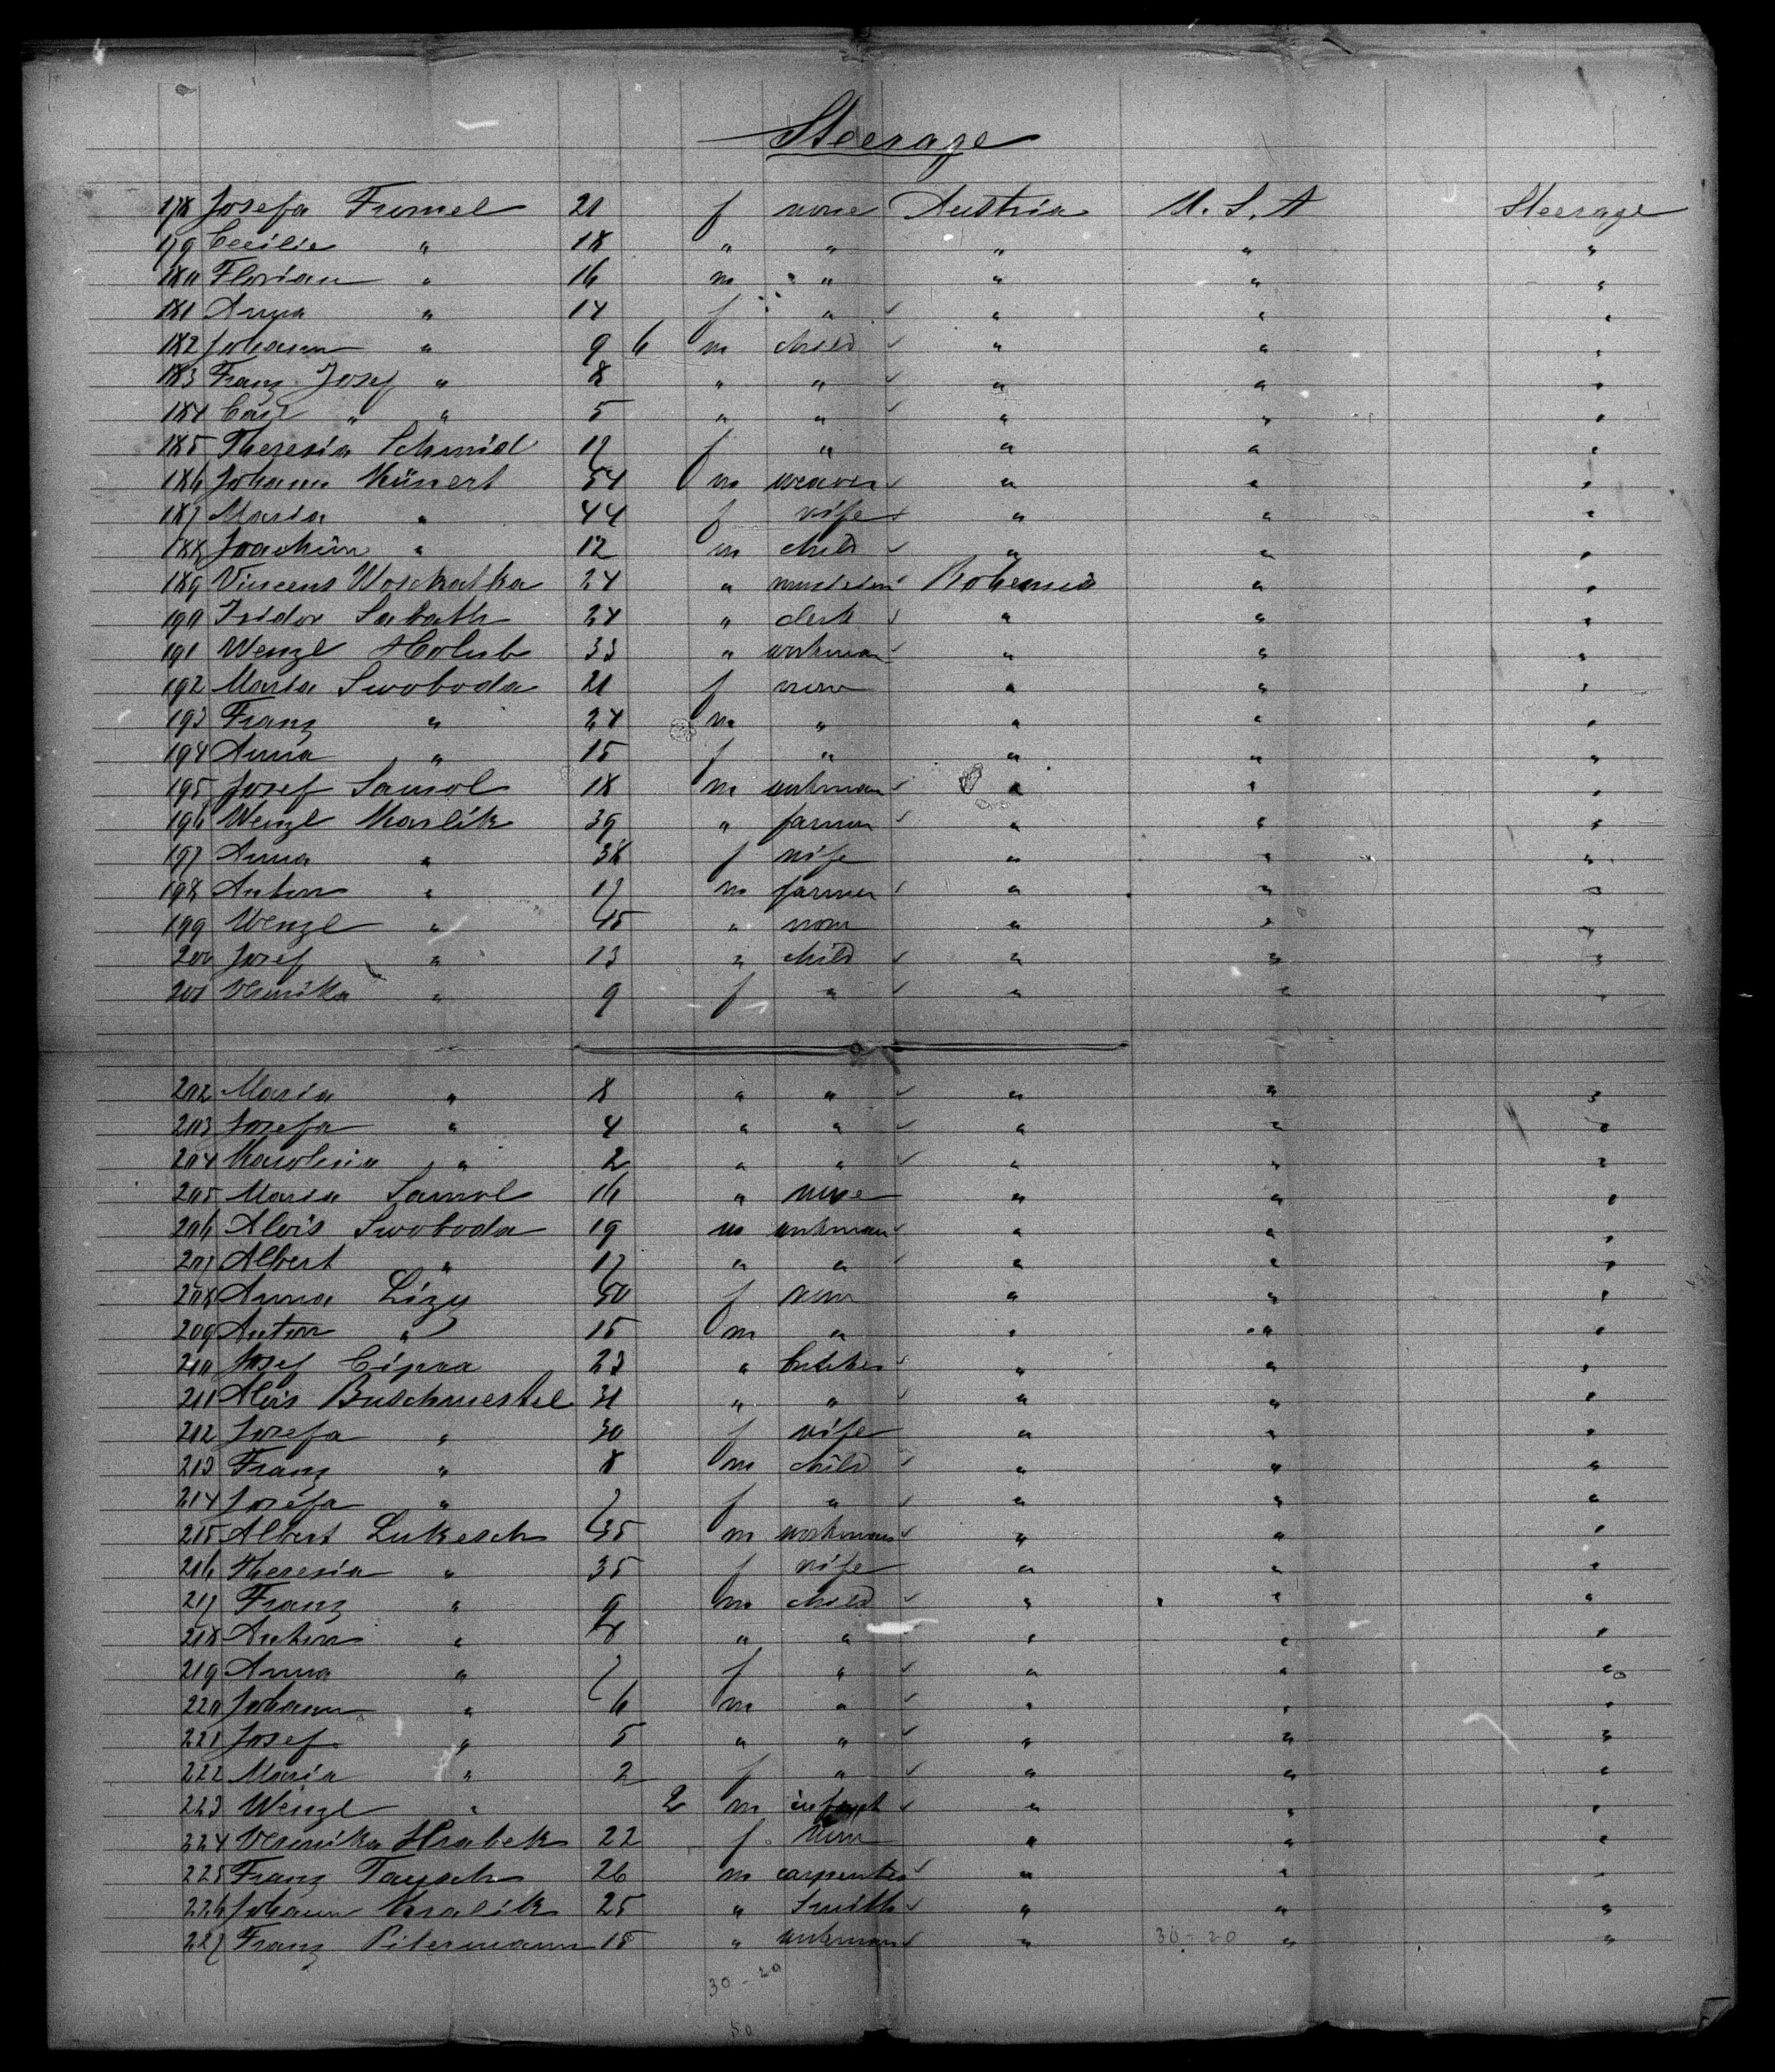 Steerage
178 Josefa Frömel 21 f none Austria U.S.A Steerage
179 Cecilie " 18 " " " " "
180 Florian " 16 m " " " "
181 Anna " 14 f " " " "
182 Johann " 9 6 m child " " "
183 Franz Josef " 8 " " " " "
184 Carl " " 5 " " " " "
185 Theresia Schmid 17 f " " " "
186 Johann Künert 54 m weaver " " "
187 Maria " 44 f wife " " "
188 Joachim " 12 m child " " "
189 Vincens Woskatka 24 " musician Bohemia " "
190 Isidor Sabath 24 " clerk " " "
191 Wenzl Holub 33 " workman " " "
192 Maria Swoboda 21 f none " " "
193 Franz " 24 m " " " "
194 Anna " 15 f " " " "
195 Josef Samol 18 m workman " " "
196 Wenzl Karlik 39 " farmer " " "
197 Anna " 38 f wife " " "
198 Anton " 17 m farmer " " "
199 Wenzl " 15 " none " " "
200 Josef " 13 " child " " "
201 Veronika " 9 f " " " "
202 Maria " 8 " " " " "
203 Josefa " 4 " " " " "
204 Karolina " 2 " " " " "
205 Maria Samol 16 " none " " "
206 Alois Swoboda 19 m workman " " "
207 Albert " 17 " " " " "
208 Anna Lizy 50 f none " " "
209 Anton " 15 m " " " "
210 Josef Cipra 23 " butcher " " "
211 Alois Buschmestel 31 " " " " "
212 Josefa " 30 f wife " " "
213 Franz " 8 m child " " "
214 Josefa " 7 f " " " "
215 Albert Lukesch 35 m workman " " "
216 Theresia " 35 f wife " " "
217 Franz " 9 m child " " "
218 Anton " 8 " " " " "
219 Anna " 7 f " " " "
220 Johann " 6 m " " " "
221 Josef " 5 " " " " "
222 Maria " 2 f " " " "
223 Wenzl " 2 m infant " " "
224 Veronika Hrabek 22 f none " " "
225 Franz Tausch 26 m carpenter " " "
226 Johann Kralik 25 " Smith " " "
227 Franz Pitermann 18 " workman " 30-20 " "
30-20
50